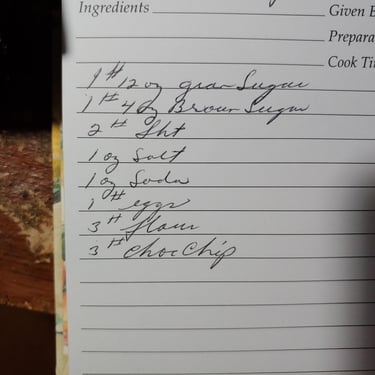 Ingredients
Given
Prepara
Cook Ti
1# 12 oz gran Sugar
1# 4 oz Brown Sugar
2# Sht
1 oz Salt
1 oz Soda
1# eggs
3# flour
3# choc Chip